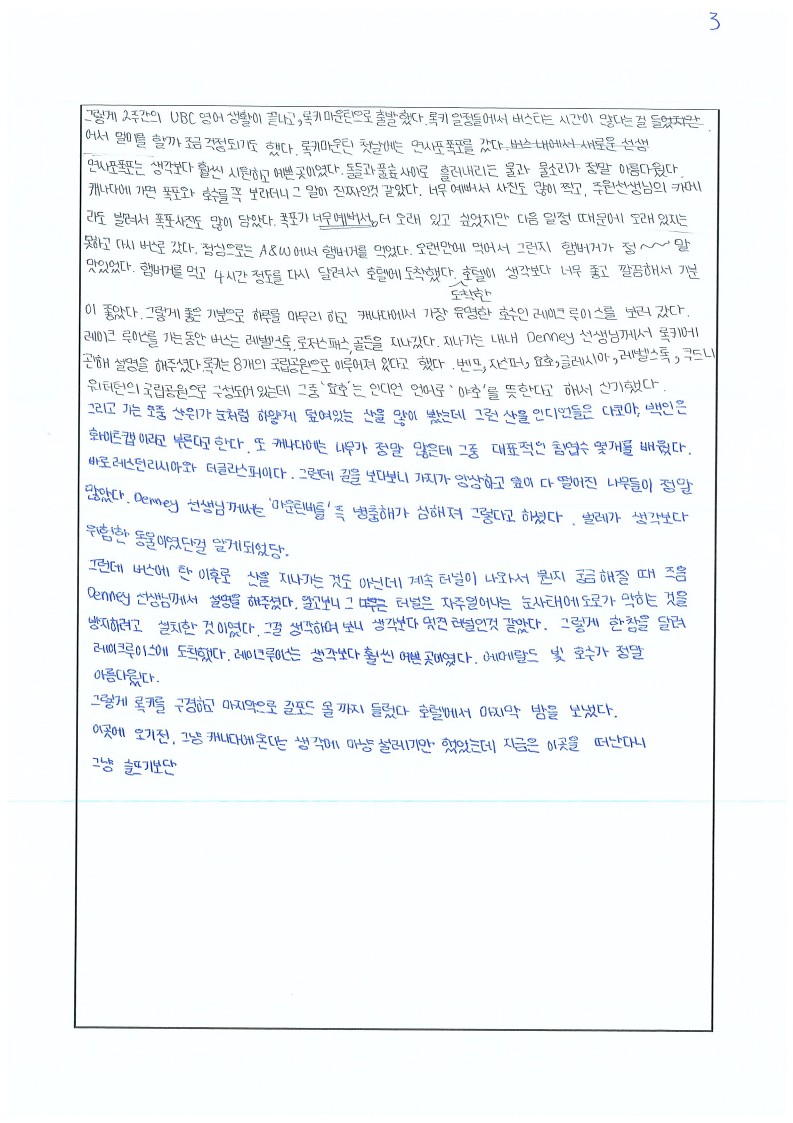 3
그렇게 2주간의 UBC 영어 생활이 끝나고, 록키마운틴으로 출발했다. 록키 일정들에서 버스타는 시간이 많다는걸 들었지만
어서 멀미를 할까 조금 걱정되기도 했다. 록키마운틴 첫날에는 연사포폭포를 갔다. 버스 내에서 새로운 선생
연사포폭포는 생각보다 훨씬 시원하고 예쁜 곳이였다. 돌들과 풀숲 사이로 흘러내리는 물과 물소리가 정말 아름다웠다.
캐나다에 가면 폭포와 호수를 꼭 보라더니 그 말이 진짜인것 같았다. 너무 예뻐서 사진도 많이 찍고, 주원선생님의 카메
라도 빌려서 폭포사진도 많이 담았다. 폭포가 너무예뻐서 더 오래 있고 싶었지만 다음 일정 때문에 오래 있지는
못하고 다시 버스로 갔다. 점심으로는 A&W에서 햄버거를 먹었다. 오랜만에 먹어서 그런지 햄버거가 정~~말
맛있었다. 햄버거를 먹고 4시간 정도를 다시 달려서 호텔에 도착했다. 호텔이 생각보다 너무 좋고 깔끔해서 기분
도착한
이 좋았다. 그렇게 좋은 기분으로 하루를 마무리 하고 캐나다에서 가장 유명한 호수인 레이크 루이스를 보러 갔다.
레이크 루이스를 가는동안 버스는 레벨스톡, 로저스패스, 골든을 지나갔다. 지나가는 내내 Denney 선생님께서 록키에
관해 설명을 해주셨다 록키는 8개의 국립공원으로 이루어져 있다고 했다. 벤프, 자스퍼, 요호, 글레시아, 레벨스톡, 쿠트니
워터턴의 국립공원으로 구성되어 있는데 그중 '요호'는 인디언 언어로 '야호'를 뜻한다고 해서 신기했다.
그리고 가는 도중 산위가 눈처럼 하얗게 덮여있는 산을 많이 봤는데 그런 산을 인디언들은 다코마, 백인은
화이트캡 이라고 부른다고 한다. 또 캐나다에는 나무가 정말 많은데 그중 대표적인 침엽수 몇개를 배웠다.
바로 레스턴리시아와 더글라스퍼이다. 그런데 길을 보다보니 가지가 앙상하고 잎이 다 떨어진 나무들이 정말
많았다. Denney 선생님께서는 '마운틴비틀' 즉 병충해가 심해져 그렇다고 하셨다. 벌레가 생각보다
위험한 동물이였단걸 알게되었당.
그런데 버스에 탄 이후로 산을 지나가는 것도 아닌데 계속 터널이 나와서 뭔지 궁금해질 때 즈음
Denney 선생님께서 설명을 해주셨다. 알고보니 그 터널은 자주일어나는 눈사태에 도로가 막히는 것을
방지하려고 설치한 것이였다. 그걸 생각하며 보니 생각보다 멋진 터널인것 같았다. 그렇게 한참을 달려
레이크루이스에 도착했다. 레이크루이스는 생각보다 훨씬 예쁜곳이였다. 에메랄드 빛 호수가 정말
아름다웠다.
그렇게 록키를 구경하고 마지막으로 길포드 몰 까지 들렀다 호텔에서 마지막 밤을 보냈다.
이곳에 오기전, 그냥 캐나다에온다는 생각에 마냥 설레기만 했었는데 지금은 이곳을 떠난다니
그냥 슬프기보단